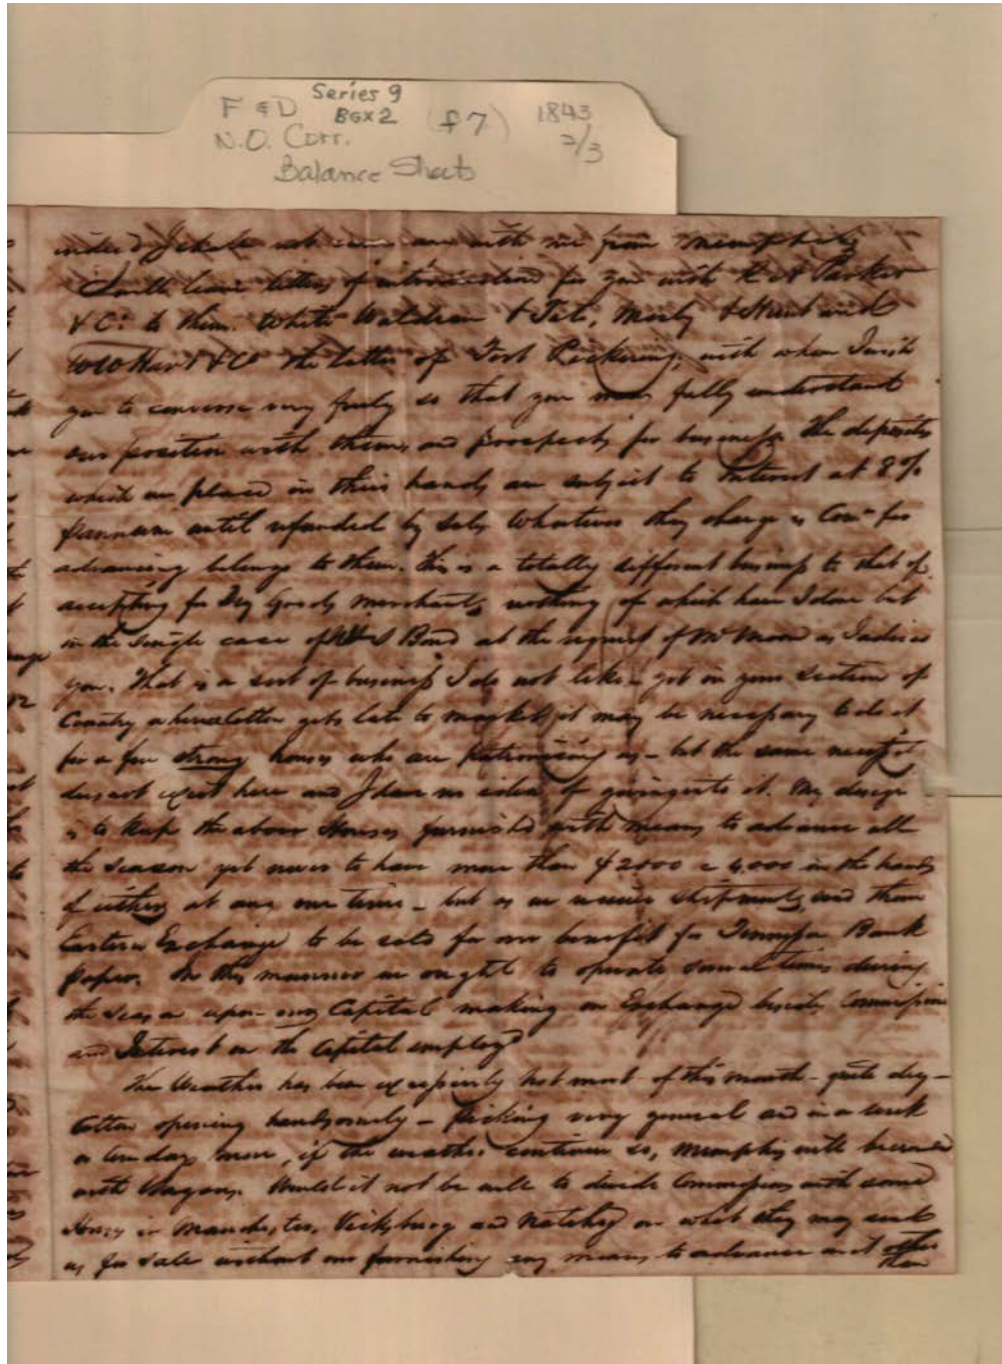 Series 9
F & D Box 2 (f 7) 1843
N.O. Corr. 2/3
Balance Sheets
indeed I shall not with me from Memphis
I will leave letters of introduction for you with R A Parker
& Co to them. White Waldran & Tile, Mosby & Hunt and
W W Hart & Co the latter of Fort Pickering, with whom I wish
you to converse very freely so that you may fully understand
our position with them, and prospects for business. The deposits
which we place in their hands are subject to Interest at 8 %
pr annum until refunded by sales Whatever they charge as Comn for
advancing belongs to them. This is a totally different business to that of
accepting for Dry Goods merchants, nothing of which have I done but
in the single case of S Bond at the request of Mr Moon as I advised
you. That is a sort of business I do not like - yet in your section of
Country where cotton gets late to market, it may be necessary to do it
for a few strong houses who are patronising us - but the same necessity
does not exist here and I have no idea of going into it. My design
is to keep the above Houses furnished with means to advance all
the season yet never to have more than $2000 a 4,000 in the hands
of either at any one time - but as we receive shipments, send them
Eastern Exchange to be sold for our benefit for Tennessee Bank
paper. In this manner we ought to operate several times during
the season upon our Capital making on Exchange beside Commission
and Interest on the Capital employd
The Weather has been excessively hot most of this month - quite dry -
Cotton opening handsomely - Picking very general and in a week
or ten days more, if the weather continues so, Memphis will be
with Wagons. Would it not be well to divide Commissions with some
Houses in Manchester, Vicksburg and Natchez on what they may send
us for sale without our furnishing any means to advance on it other
than